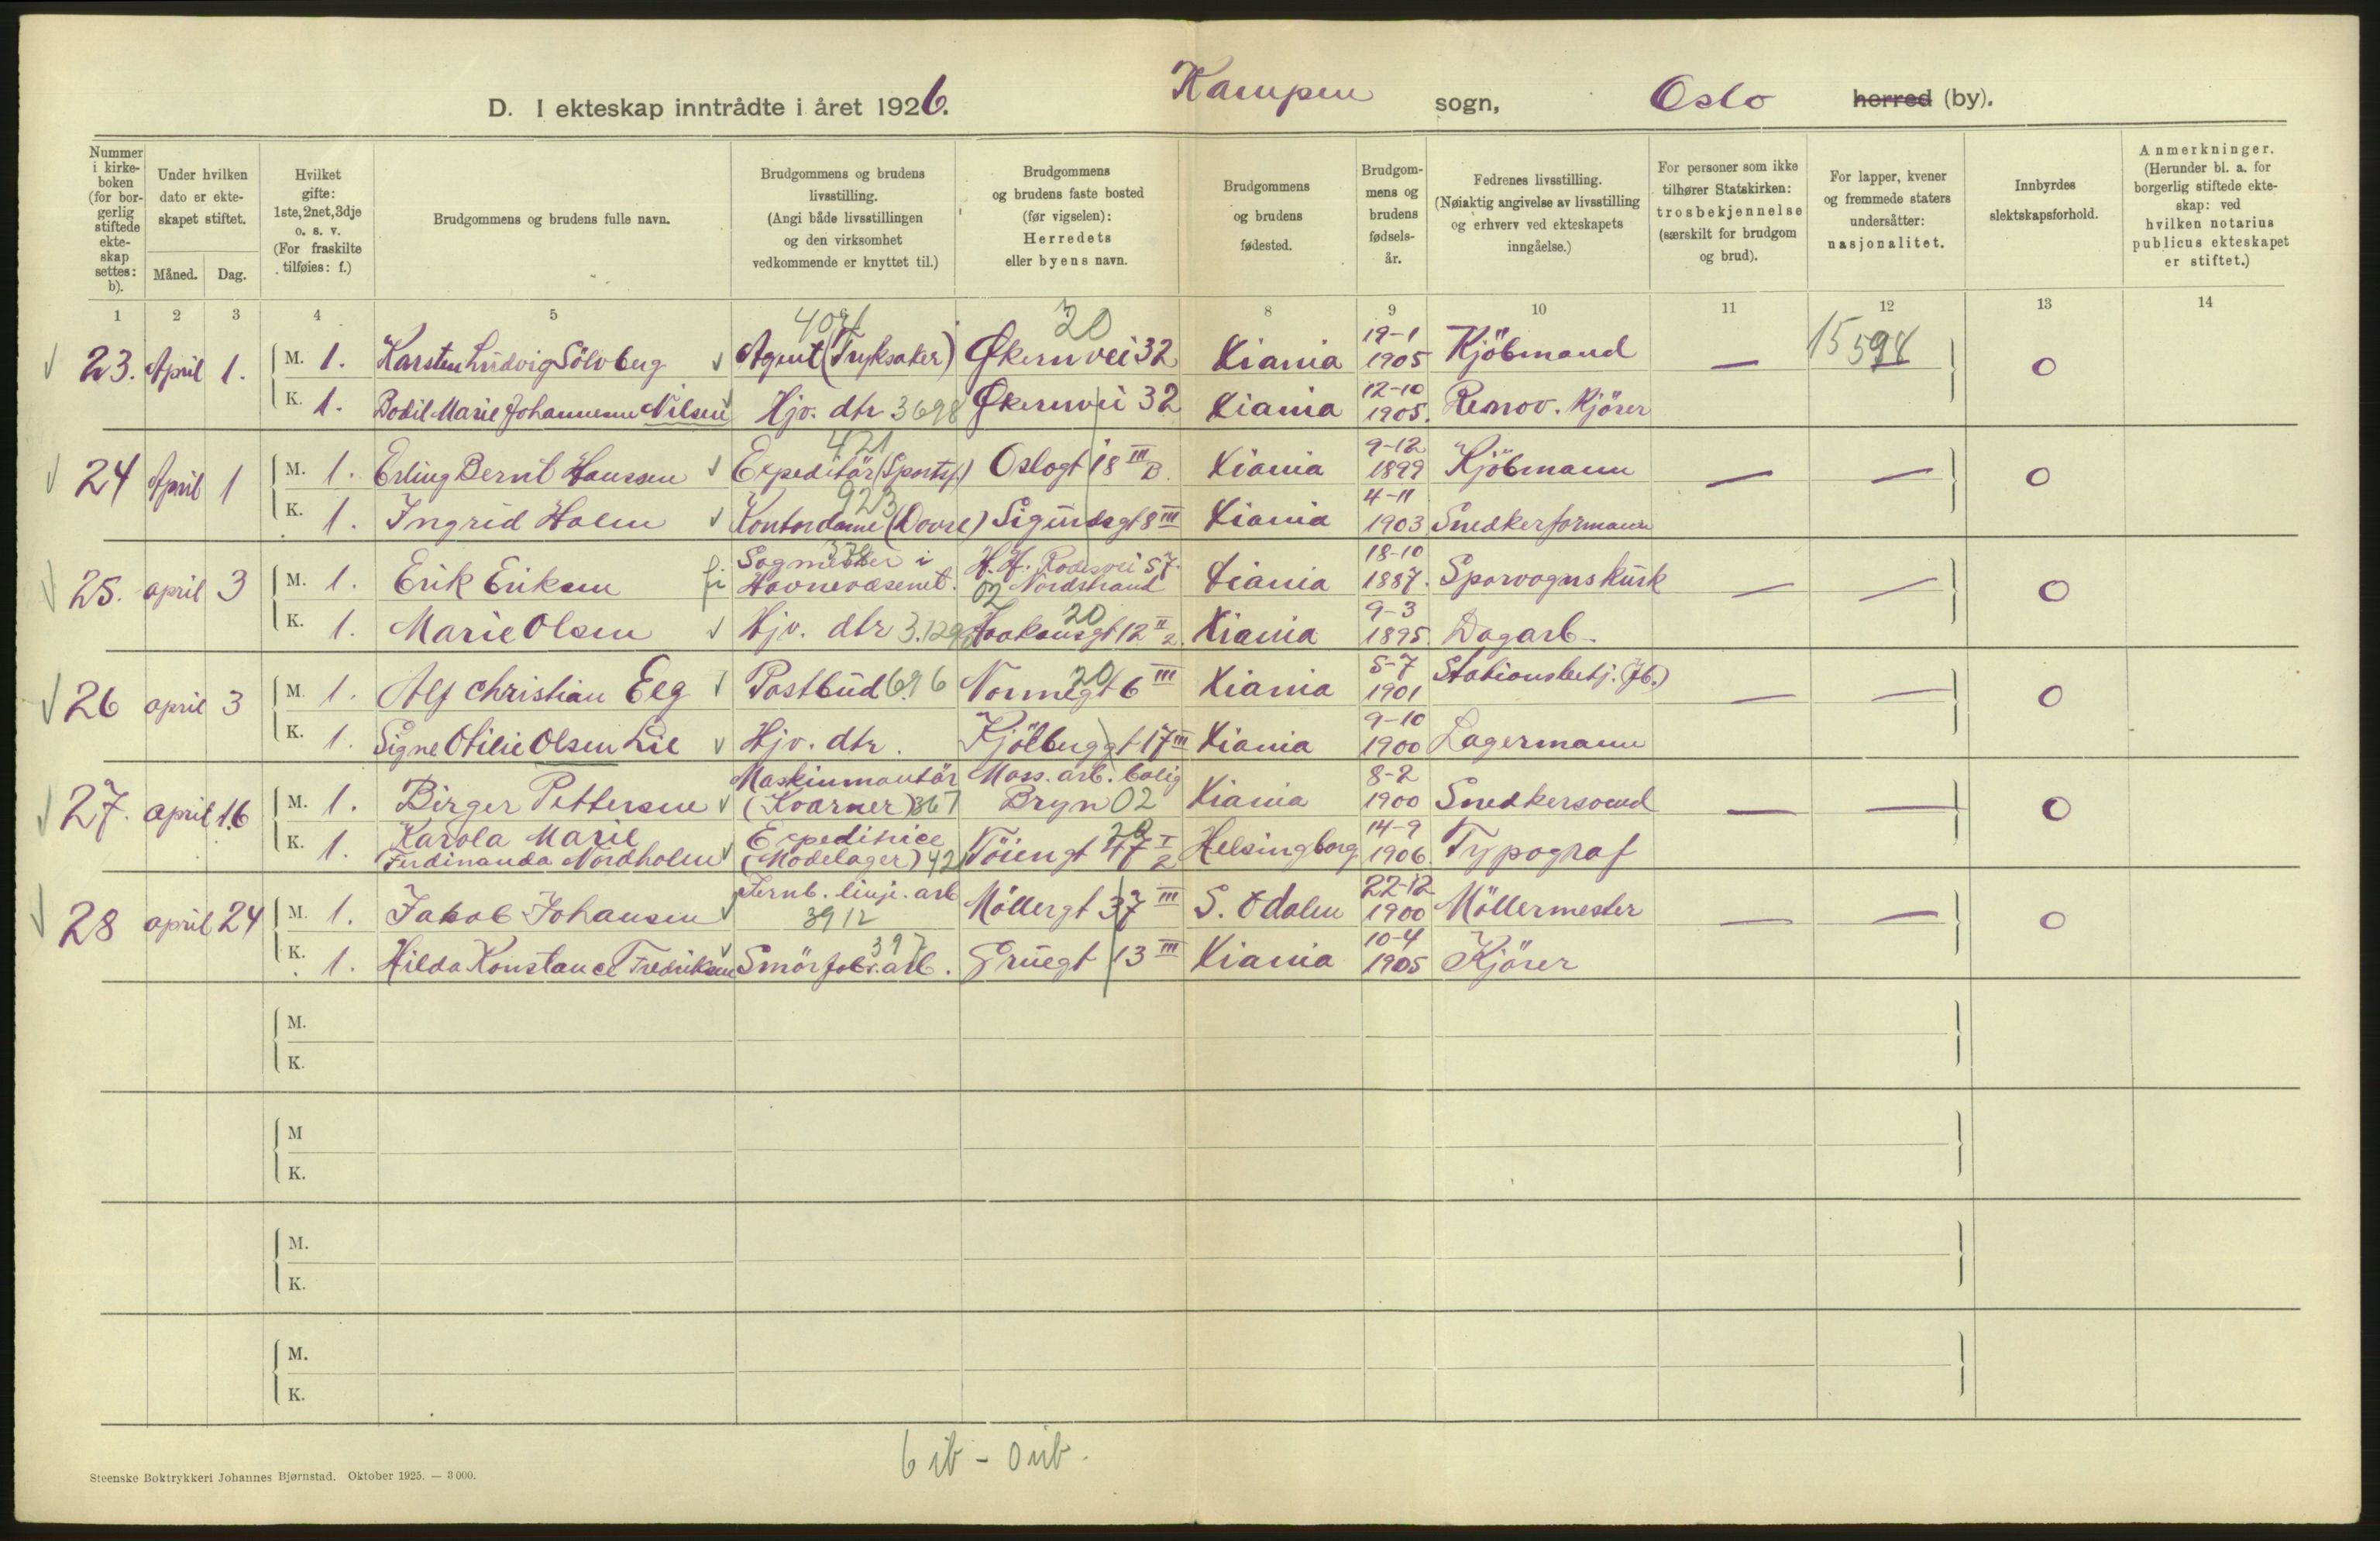 D. I ekteskap inntrådte i året 1926. Kampen sogn, Oslo herred (by).
Nummer i kirke-boken (for bor-gerlig stiftede ekte-skap settes: b).
Under hvilken dato er ekte-skapet stiftet.
Måned. Dag.
Hvilket gifte: 1ste, 2net, 3dje o. s. v. (For fraskilte tilføies: f.)
Brudgommens og brudens fulle navn.
Brudgommens og brudens livsstilling. (Angi både livsstillingen og den virksomhet vedkommende er knyttet til.)
Brudgommens og brudens faste bosted (før vigselen): Herredets eller byens navn.
Brudgommens og brudens fødested.
Brudgom-mens og brudens fødsels-år.
Fedrenes livsstilling. (Nøiaktig angivelse av livsstilling og erhverv ved ekteskapets inngåelse.)
For personer som ikke tilhører Statskirken: trosbekjennelse (særskilt for brudgom og brud).
For lapper, kvener og fremmede staters undersåtter: nasjonalitet.
Innbyrdes slektskapsforhold.
Anmerkninger. (Herunder bl. a. for borgerlig stiftede ekte-skap: ved hvilken notarius publicus ekteskapet er stiftet.)
1 2 3 4 5 8 9 10 11 12 13 14
23. April 1. M. 1. Karsten Ludvig Sölvberg Agent (Tryksaker) Økernvei 32 20 Kiania 19-1 1905 Kjöbmand — 15594 0
K. 1. Bodil Marie Johannesen Nilsen Hjv. dtr 3698 Økernvei 32 Kiania 12-10 1905. Renov. Kjörer
24 April 1 M. 1. Erling Bernt Hanssen 421 Expeditör (Sportsf.) Oslogt 18 III B. Kiania 9-12 1899 Kjöbmann — — 0
K. 1. Ingrid Holm 923 Kontordame (Dovre) Sigurdsgt 8 III Kiania 4-11 1903 Snedkerformann
25. april 3 M. 1. Erik Eriksen Sagmester i Havnevæsenet. H. H. Rodesvei 57. 02 Nordstrand Kiania 18-10 1887. Sporvognskusk — — 0
K. 1. Marie Olsen Hjv. dtr 3.129 Haakonsgt 12 II 2. 20 Kiania 9-3 1895. Dagarb.
26 april 3 M. 1. Alf Christian Eeg Postbud 696 Normegt 6 III 20 Kiania 5-7 1901 Stationsbetj. (Jb.) — — 0
K. 1. Signe Otilie Olsen Lie Hjv. dtr. Kjölberggt 17 III Kiania 9-10 1900 Lagermann
27. april 16 M. 1. Birger Pettersen Maskinmontör (Kværner) 367 Moss. arb. bolig Bryn 02 Kiania 8-2 1900 Snedkersvend — — 0
K. 1. Karola Marie Ferdinanda Nordholm Expeditrice (Modelager) 421 Töiengt 47 I 2 20 Helsingborg 14-9 1906. Typograf
28 april 24 M. 1. Jakob Johansen Jernb. linje. arb 3912 Möllergt 37 III S. Odalen 22-12 1900 Möllermester — — 0
K. 1. Hilda Konstance Fredriksen Smörfabr. arb. 397 Gruegt 13 III Kiania 10-4 1905 Kjörer
M.
K.
M
K.
M.
K.
M.
K.
6 ib - 0 uib.
Steenske Boktrykkeri Johannes Bjørnstad. Oktober 1925. — 3 000.